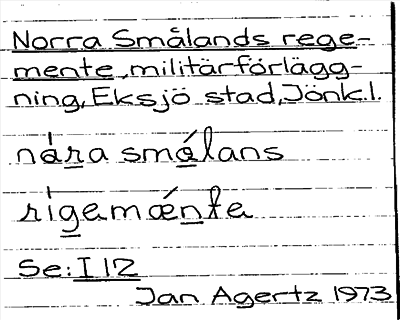 Norra Smålands rege-
mente, militärförlägg-
ning, Eksjö stad, Jönk.l.
nára smǻlans
rigemǽnte
Se: I 12
Jan Agertz 1973